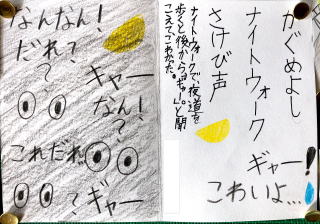 かぐめよし
ナイトウォーク
ギャー!
こわいよ…
さけび声
ナイトウォークで、夜道を
歩くと後から「ギャー」と聞
こえてこわかった。
なんなん!
だれ?
?
ギャー
なん!
?
これだれ
?
ギャー